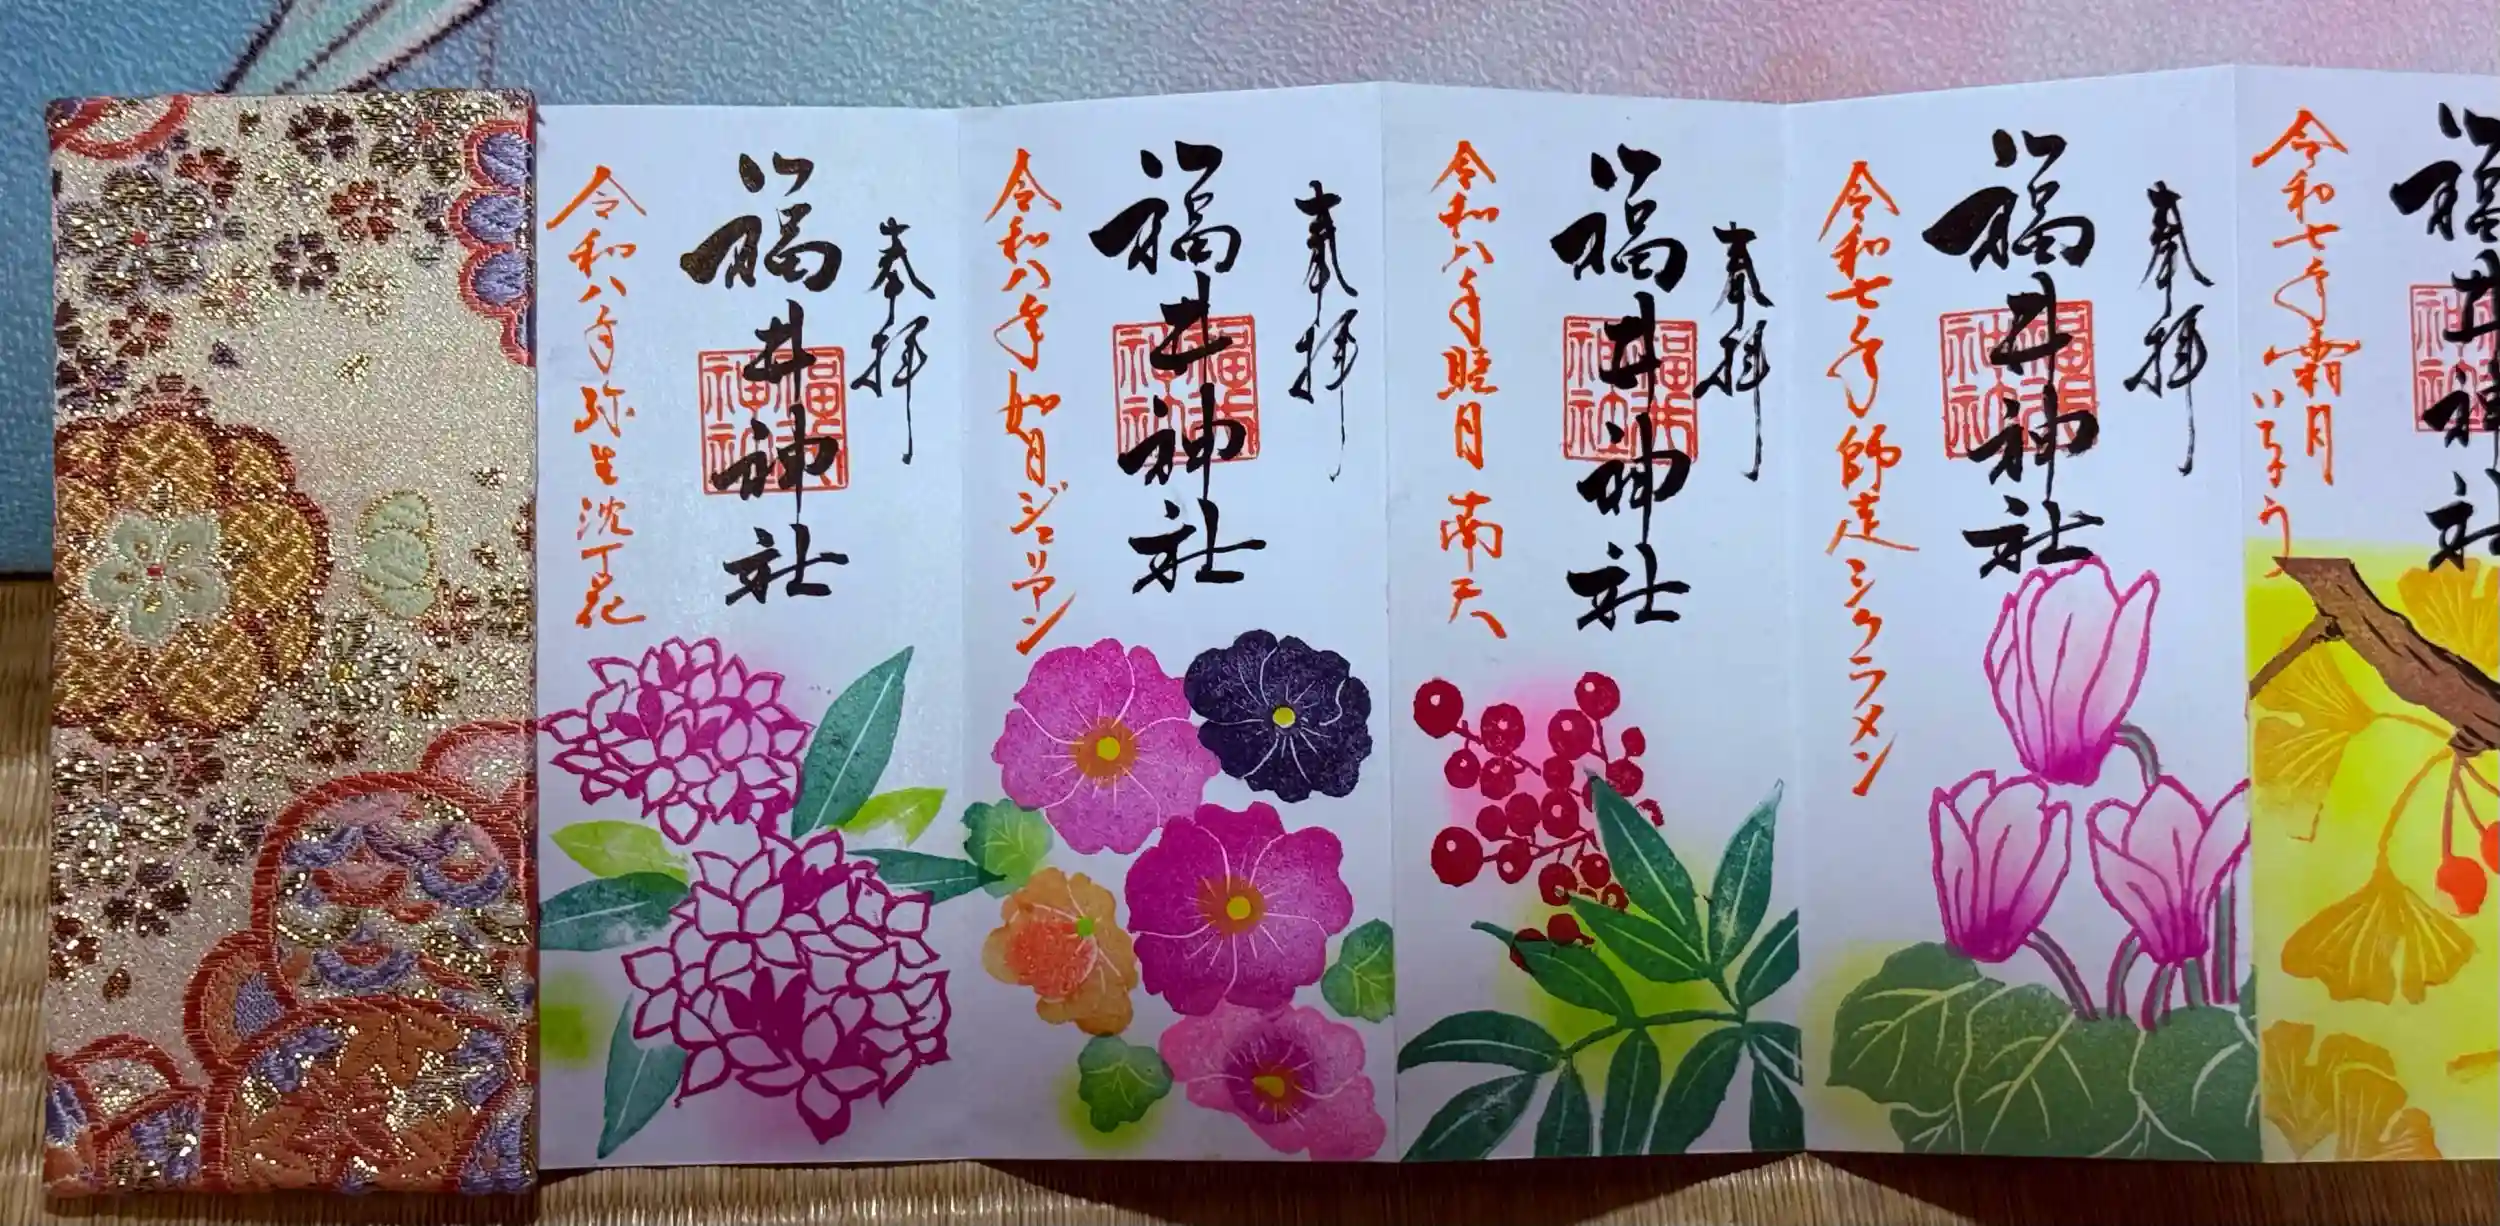 福井神社
令和七年霜月
いちょう
奉拝
福井神社
福井神社
令和七年師走シクラメン
奉拝
福井神社
福井神社
令和八年睦月 南天
奉拝
福井神社
福井神社
令和八年如月ジュリアン
奉拝
福井神社
福井神社
令和八年弥生沈丁花